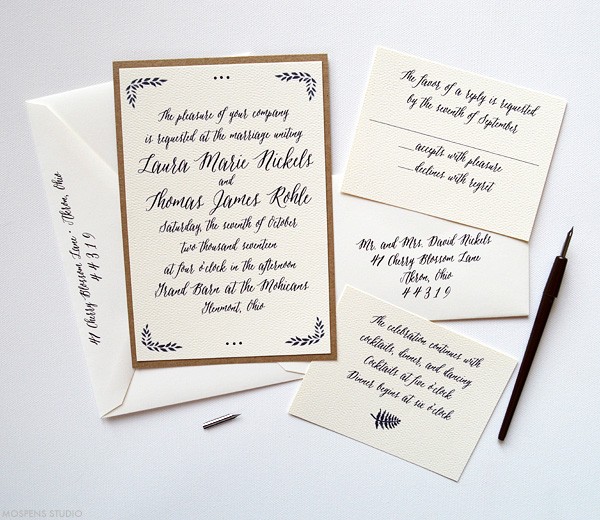 The pleasure of your company
is requested at the marriage uniting
Laura Marie Nickels
and
Thomas James Rohle
Saturday, the seventh of October
two thousand seventeen
at four o'clock in the afternoon
Grand Barn at the Mohicans
Glenmont, Ohio
41 Cherry Blossom Lane - Akron, Ohio
44319
The favor of a reply is requested
by the seventh of September
accepts with pleasure
declines with regret
Mr. and Mrs. David Nickels
41 Cherry Blossom Lane
Akron, Ohio
44319
The celebration continues with
cocktails, dinner, and dancing
Cocktails at five o'clock
Dinner begins at six o'clock
MOSPENS STUDIO